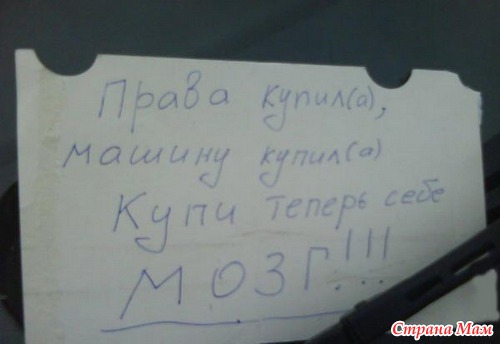 Права купил(а),
машину купил(а)
Купи теперь себе
МОЗГ!!!
Страна Мам